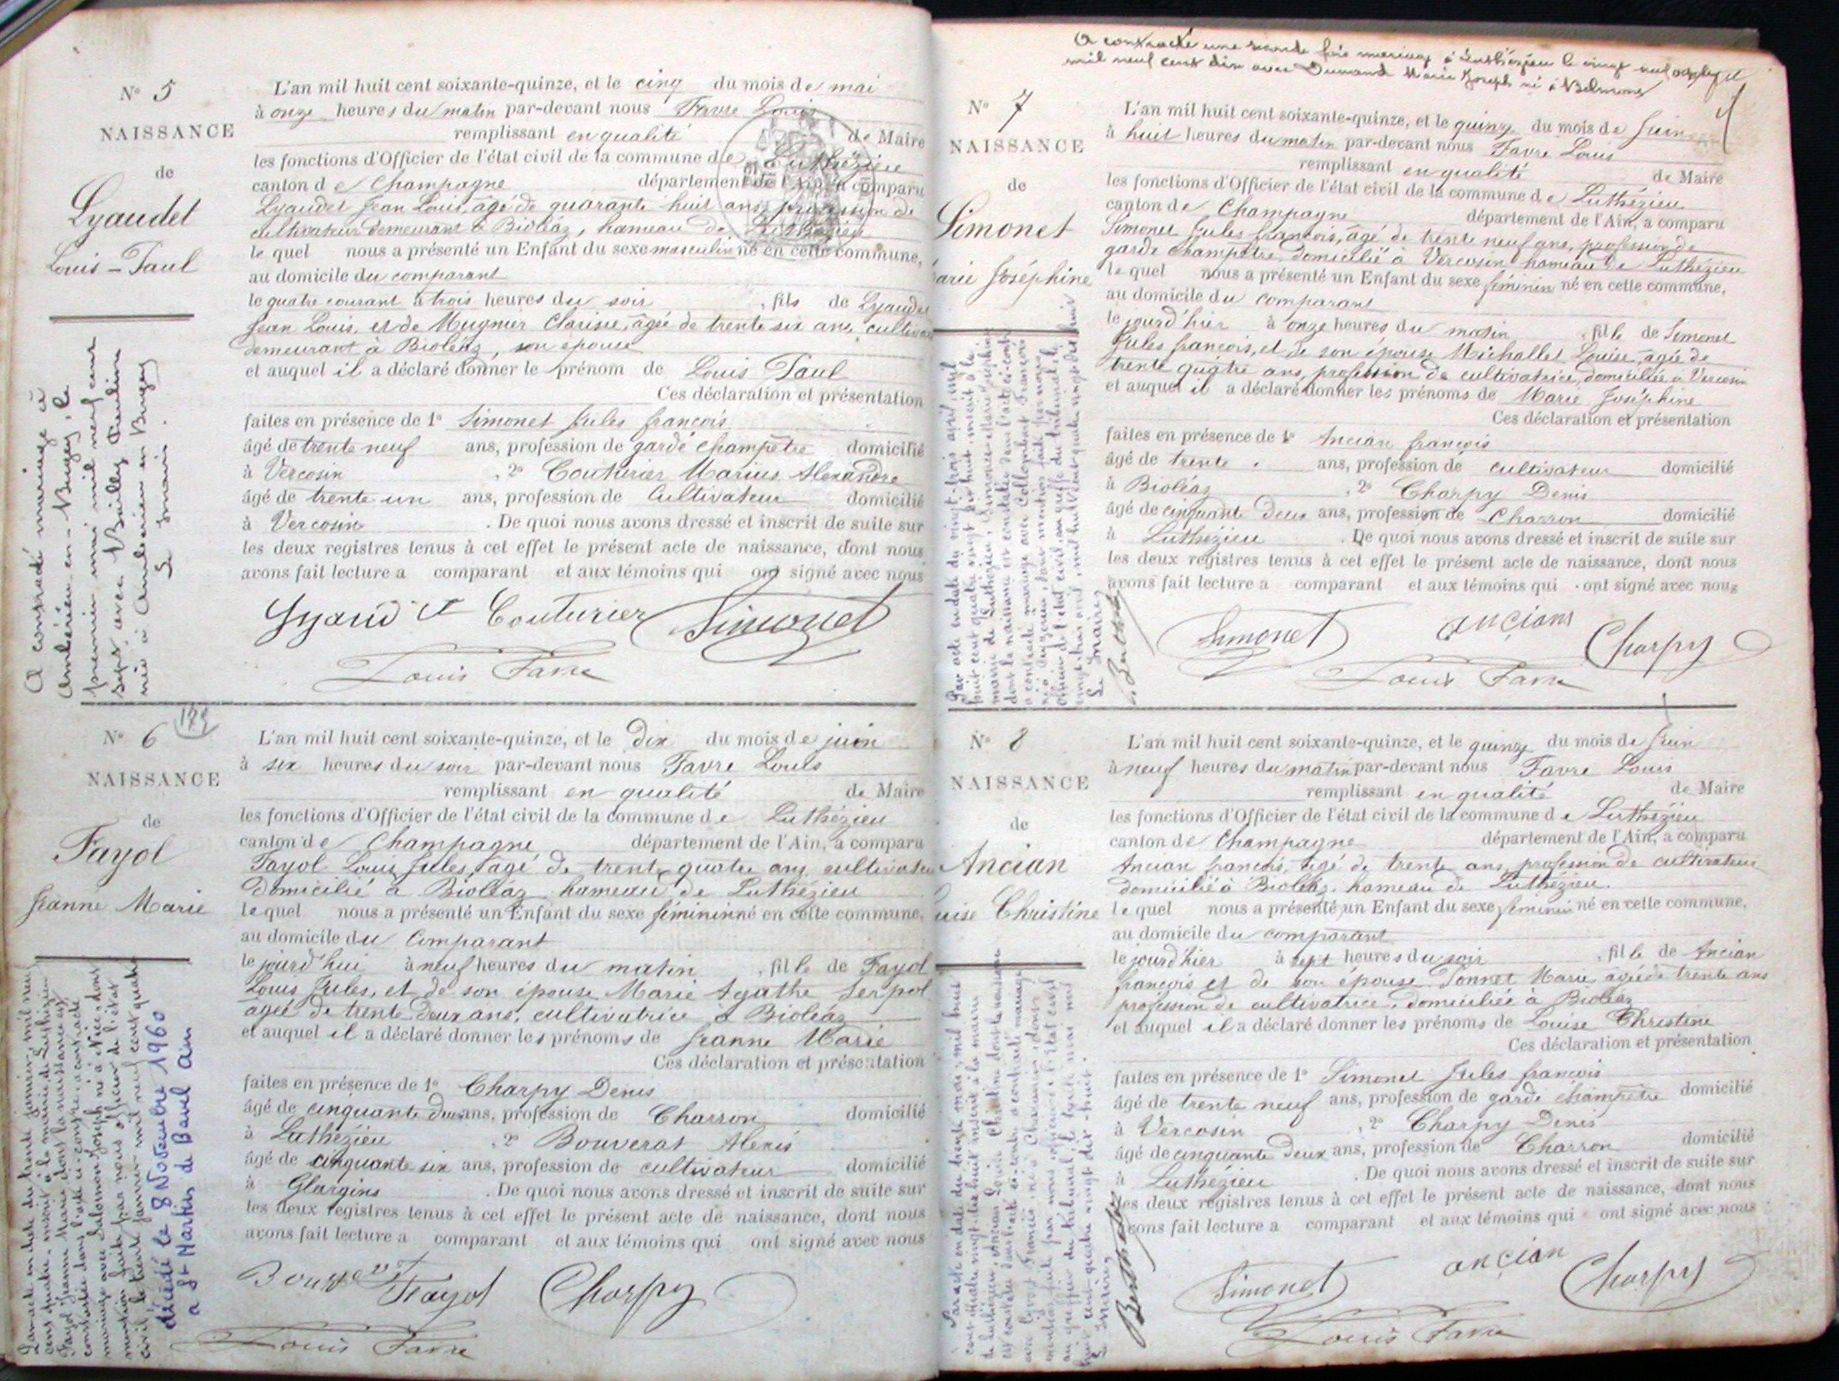 N° 5
NAISSANCE
de
Lyaudet
Louis-Paul
L'an mil huit cent soixante-quinze, et le cinq du mois de mai
à onze heures du matin par-devant nous Favre Louis
remplissant en qualité de Maire
les fonctions d'Officier de l'état civil de la commune de Luthézieu
canton de Champagne département de l'Ain, a comparu
Lyaudet Jean Louis, âgé de quarante huit ans, profession de
cultivateur demeurant à Bioléaz, hameau de Luthézieu
lequel nous a présenté un Enfant du sexe masculin né en cette commune,
au domicile du comparant
le quatre courant à trois heures du soir, fils de Lyaudet
Jean Louis, et de Mugnier Clarisse, âgée de trente six ans, cultiva
demeurant à Bioléaz, son épouse
et auquel il a déclaré donner le prénom de Louis Paul
Ces déclaration et présentation
faites en présence de 1° Simonet Jules françois
âgé de trente neuf ans, profession de garde champêtre domicilié
à Vercosin, 2° Couturier Marius Alexandre
âgé de trente un ans, profession de Cultivateur domicilié
à Vercosin. De quoi nous avons dressé et inscrit de suite sur
les deux registres tenus à cet effet le présent acte de naissance, dont nous
avons fait lecture a comparant et aux témoins qui ont signé avec nous
Lyaudet Couturier Simonet
Louis Favre
A contracté mariage à
Ambérieu-en-Bugey, le
premier mai mil neuf cent
sept, avec Bailly Pauline
née à Ambérieu en Bugey
Le maire.
N° 6
NAISSANCE
de
Fayol
Jeanne Marie
L'an mil huit cent soixante-quinze, et le dix du mois de juin
à six heures du soir par-devant nous Favre Louis
remplissant en qualité de Maire
les fonctions d'Officier de l'état civil de la commune de Luthézieu
canton de Champagne département de l'Ain, a comparu
Fayol Louis Jules, âgé de trente quatre ans, cultivateur
domicilié à Bioléaz hameau de Luthézieu
lequel nous a présenté un Enfant du sexe féminin né en cette commune,
au domicile du Comparant
le jourd'hui à neuf heures du matin, fille de Fayol
Louis Jules, et de son épouse Marie Agathe Serpol
âgée de trente deux ans, cultivatrice à Bioléaz
et auquel il a déclaré donner les prénoms de Jeanne Marie
Ces déclaration et présentation
faites en présence de 1° Charpy Denis
âgé de cinquante deux ans, profession de Charron domicilié
à Luthézieu, 2° Bouverat Alexis
âgé de cinquante six ans, profession de cultivateur domicilié
à Glargins. De quoi nous avons dressé et inscrit de suite sur
les deux registres tenus à cet effet le présent acte de naissance, dont nous
avons fait lecture a comparant et aux témoins qui ont signé avec nous
Bouverat Fayol Charpy
Louis Favre
Par acte en date du trente janvier mil neuf
cent quatre, inscrit à la mairie de Luthézieu
Fayol Jeanne Marie dont la naissance est
constatée dans l'acte ci-contre a contracté
mariage avec Salomon Joseph né à Nice dont
mention faite par nous officier de l'état
civil le trente janvier mil neuf cent quatre
décédé le 8 Novembre 1960
a St Martin de Bavel Ain
A contracté une seconde fois mariage à Luthézieu le vingt neuf
mil neuf cent dix avec Dumand Marie Joseph né à Belmont
N° 7
NAISSANCE
de
Simonet
arie Joséphine
L'an mil huit cent soixante-quinze, et le quinze du mois de Juin
à huit heures du matin par-devant nous Favre Louis
remplissant en qualité de Maire
les fonctions d'Officier de l'état civil de la commune de Luthézieu
canton de Champagne département de l'Ain, a comparu
Simonet Jules françois, âgé de trente neuf ans, profession de
garde champêtre domicilié à Vercosin hameau de Luthézieu
lequel nous a présenté un Enfant du sexe féminin né en cette commune,
au domicile du comparant
le jourd'hier à onze heures du matin, fille de Simonet
Jules françois, et de son épouse Michallet Louise, âgée de
trente quatre ans, profession de cultivatrice, domiciliée à Vercosin
et auquel il a déclaré donner les prénoms de Marie Joséphine
Ces déclaration et présentation
faites en présence de 1° Ancian françois
âgé de trente ans, profession de cultivateur domicilié
à Bioléaz, 2° Charpy Denis
âgé de cinquante deux ans, profession de Charron domicilié
à Luthézieu. De quoi nous avons dressé et inscrit de suite sur
les deux registres tenus à cet effet le présent acte de naissance, dont nous
avons fait lecture a comparant et aux témoins qui ont signé avec nous
Simonet ancian Charpy
Louis Favre
Par acte en date du vingt-trois avril mil
huit cent quatre vingt dix huit inscrit à la
mairie de Luthézieu, Simonet Marie Joséphine
dont la naissance est constatée dans l'acte ci-contre
a contracté mariage avec Collombat François
Le Maire
N° 8
NAISSANCE
de
Ancian
uise Christine
L'an mil huit cent soixante-quinze, et le quinze du mois de Juin
à neuf heures du matin par-devant nous Favre Louis
remplissant en qualité de Maire
les fonctions d'Officier de l'état civil de la commune de Luthézieu
canton de Champagne département de l'Ain, a comparu
Ancian françois, âgé de trente ans, profession de cultivateur
domicilié à Bioléaz, hameau de Luthézieu.
lequel nous a présenté un Enfant du sexe féminin né en cette commune,
au domicile du comparant
le jourd'hier à sept heures du soir, fille de Ancian
françois et de son épouse Tonnet Marie, âgée de trente ans
profession de cultivatrice, domiciliée à Bioléaz
et auquel il a déclaré donner les prénoms de Louise Christine
Ces déclaration et présentation
faites en présence de 1° Simonet Jules françois
âgé de trente neuf ans, profession de garde champêtre domicilié
à Vercosin, 2° Charpy Denis
âgé de cinquante deux ans, profession de Charron domicilié
à Luthézieu. De quoi nous avons dressé et inscrit de suite sur
les deux registres tenus à cet effet le présent acte de naissance, dont nous
avons fait lecture a comparant et aux témoins qui ont signé avec nous
Simonet ancian Charpy
Louis Favre